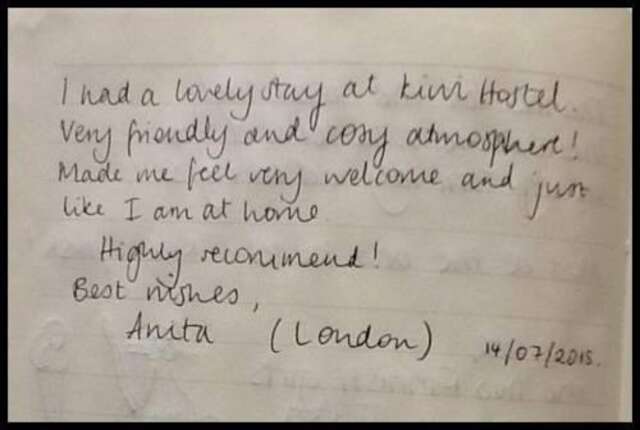 I had a lovely stay at kiwi Hostel.
Very friendly and cosy atmosphere!
Made me feel very welcome and just
like I am at home
Highly recommend!
Best wishes,
Anita (London) 14/07/2015.